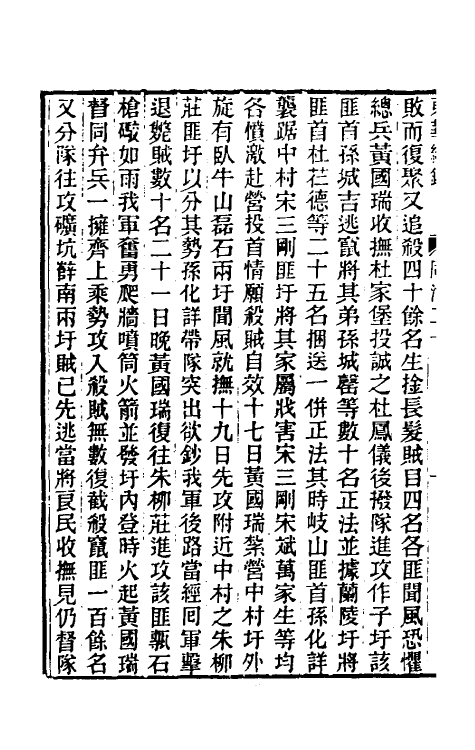 敗而復聚又追殺四十餘名生擒長髮賊目四名各匪聞風恐懼
總兵黃國瑞收撫杜家堡投誠之杜鳳儀後撥隊進攻作子圩該
匪首孫城吉逃竄將其弟孫城罄等數十名正法並據蘭陵圩將
匪首杜茳德等二十五名捆送一併正法其時岐山匪首孫化詳
襲踞中村宋三剛匪圩將其家屬戕害宋三剛宋斌萬家生等均
各憤激赴營投首情願殺賊自效十七日黃國瑞紮營中村圩外
旋有臥牛山磊石兩圩聞風就撫十九日先攻附近中村之朱柳
莊匪圩以分其勢孫化詳帶隊突出欲鈔我軍後路當經囘軍擊
退斃賊數十名二十一日晚黃國瑞復往朱柳莊進攻該匪甎石
槍礮如雨我軍奮勇爬牆噴筒火箭並發圩內登時火起黃國瑞
督同弁兵一擁齊上乘勢攻入殺賊無數復截殺竄匪一百餘名
又分隊往攻礦坑薛南兩圩賊已先逃當將良民收撫見仍督隊